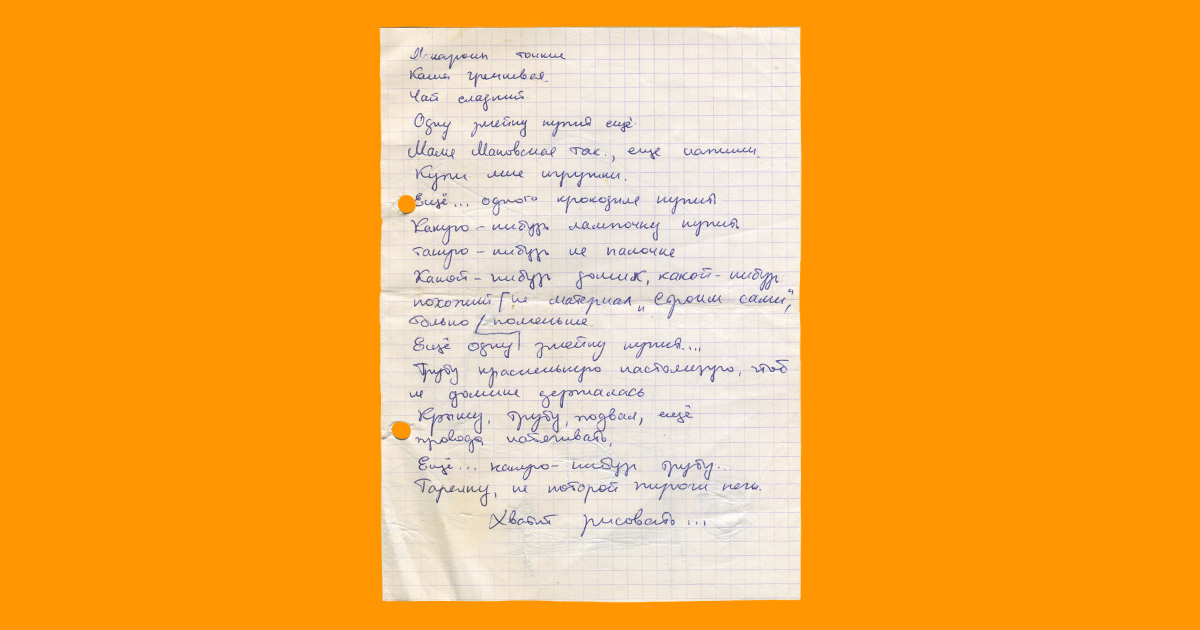 Макароны тонкие
Каша гречневая.
Чай сладкий
Одну змейку купит ещё.
Маме Маковской так., еще напиши.
Купи мне игрушки.
Ещё... одного крокодила купить
Какую-нибудь лампочку купить
такую-нибудь на палочке
Какой-нибудь домик, какой-нибудь
похожий на материал "Строим сами",
только поменьше.
Ещё одну змейку купить...
Трубу красненькую настоящую, чтоб
на домике держалась
Крышу, трубу, подвал, ещё
провода натягивать,
Ещё... какую-нибудь трубу...
Тарелку, на которой пироги печь.
Хватит рисовать...